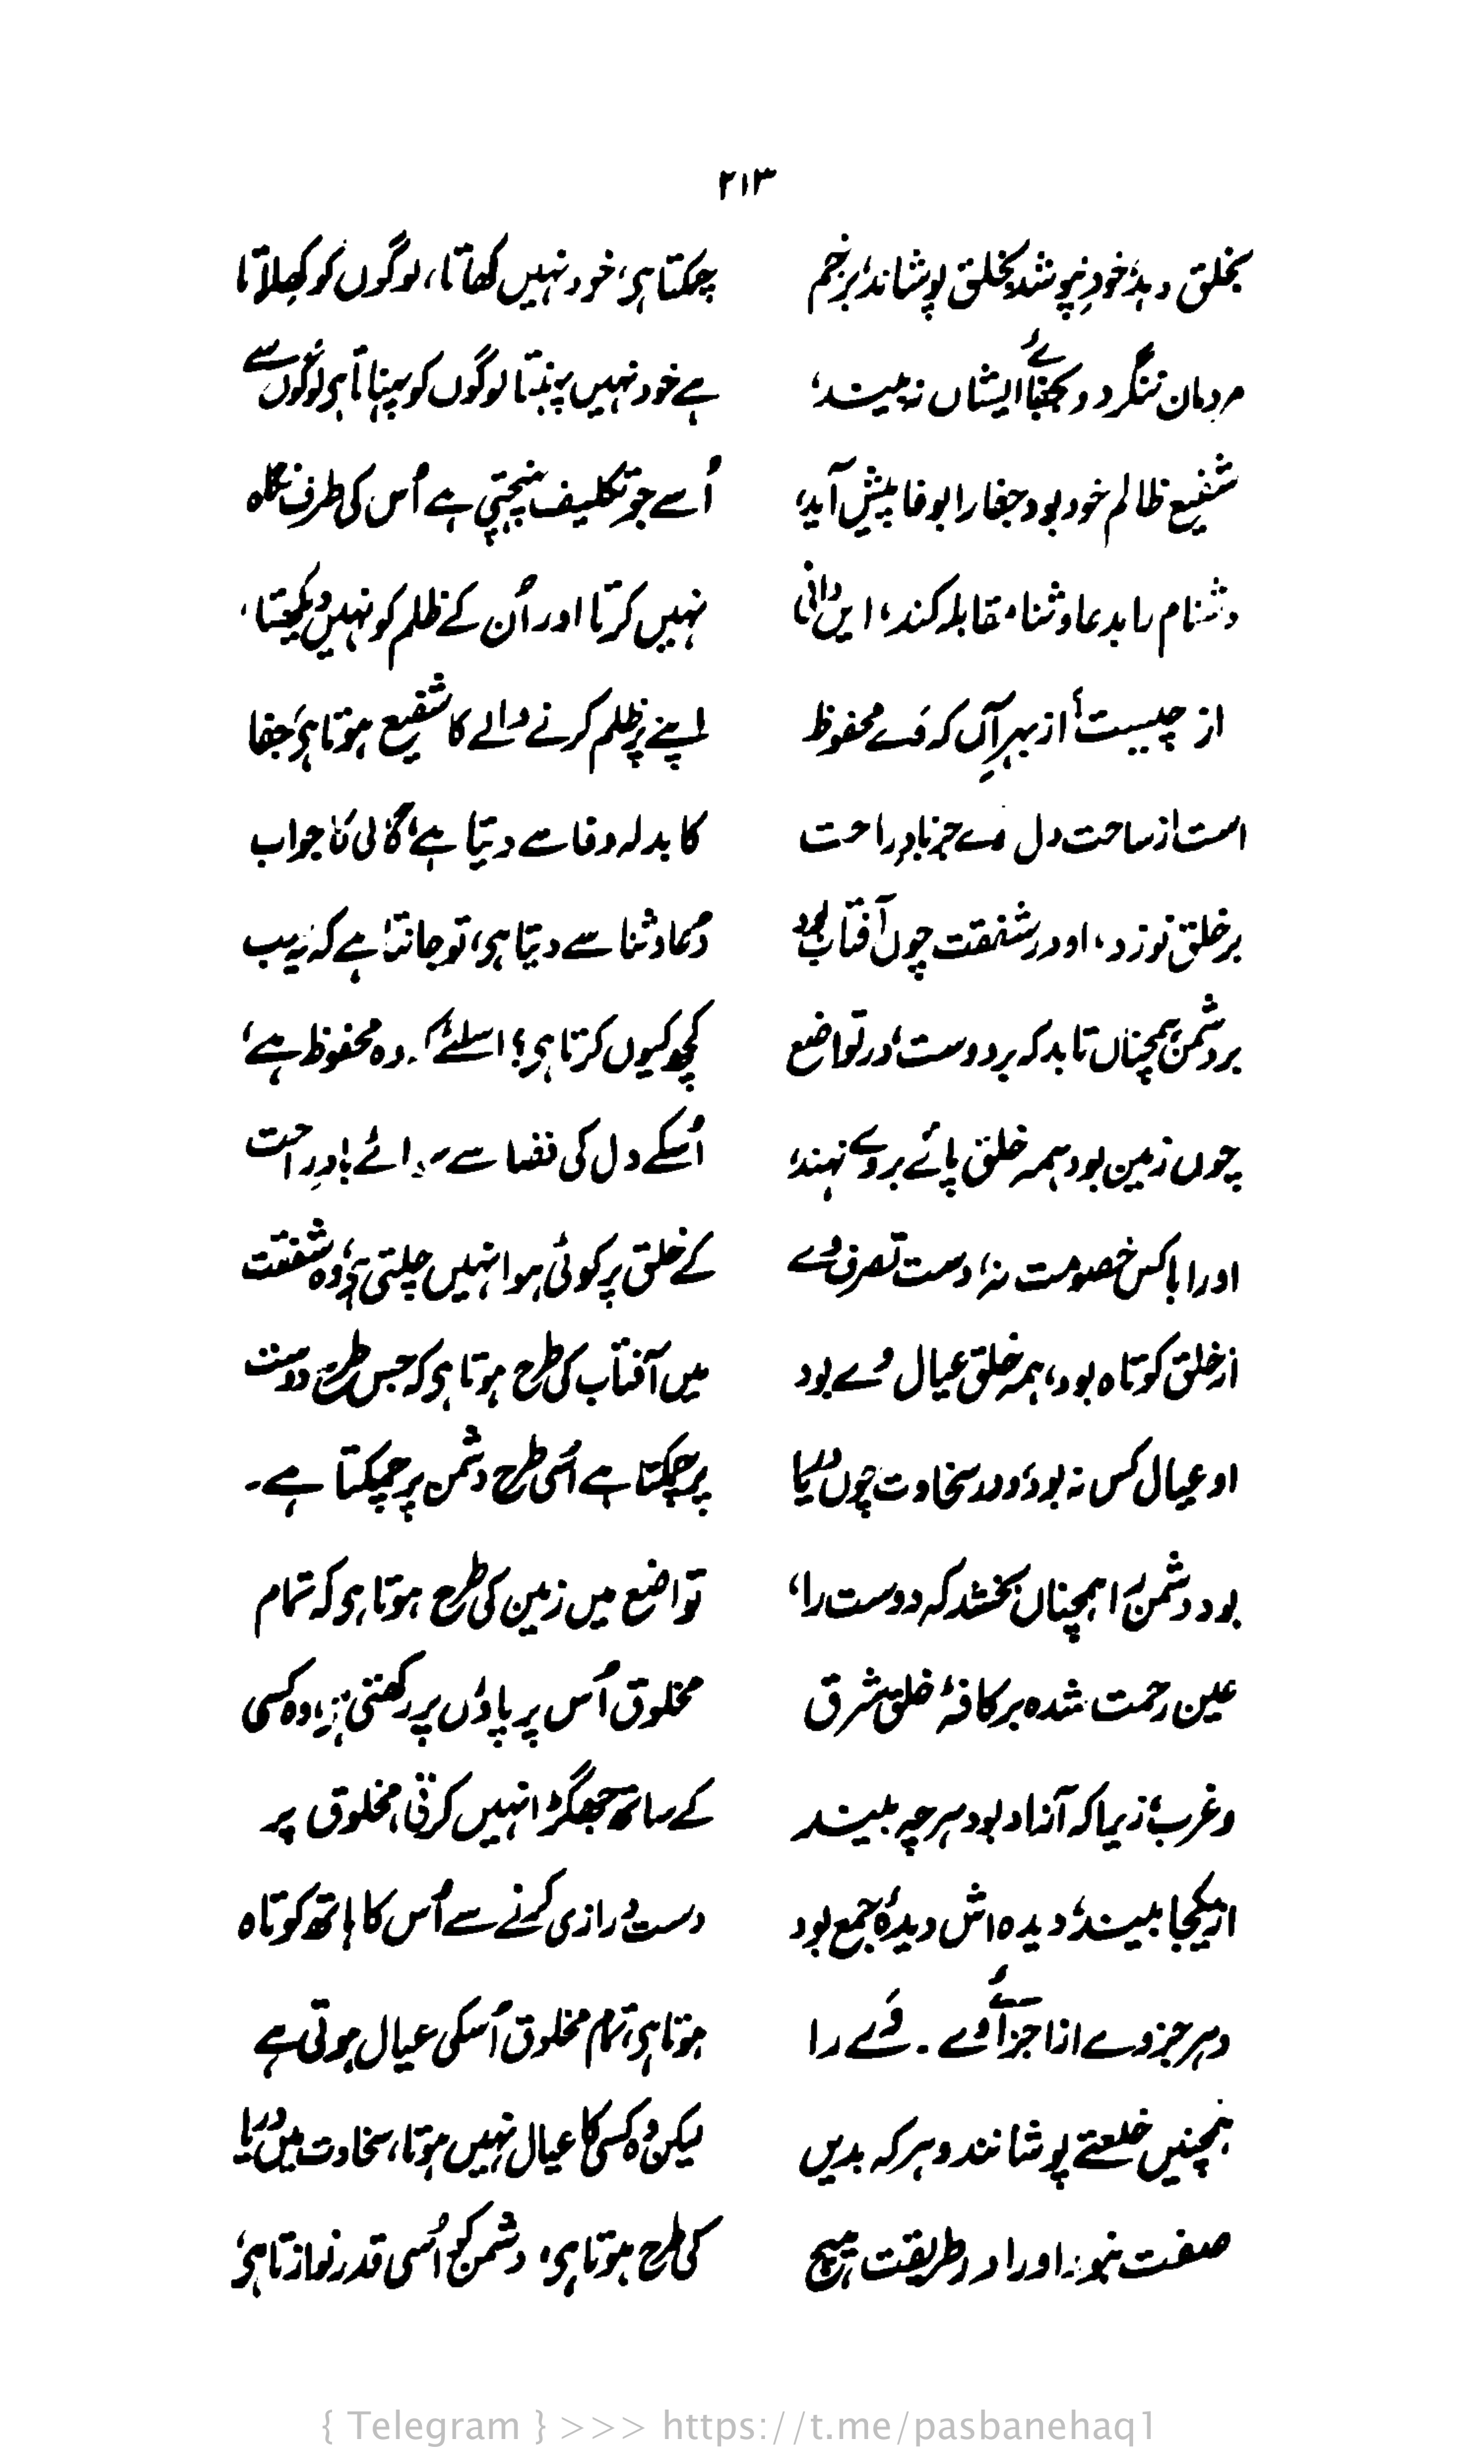 ۲۱۳
بخلق دہد، خود نپوشد بخلق پوشاند، برزخم
مردمان ننگرد و بجفائے ایشاں نہ بیند،
شفیع ظالم خود بود جفا را بوفا پیش آید،
دشنام را بدعا و ثنا مقابلہ کند، ایں دانی
از چیست؟ از بہرِ آں کہ وَے محفوظ
است از ساحت دل وے جز بادِ راحت
بر خلق نوزد، او در شفقت چوں آفتاب بود
بر دشمن ہمچناں تابد کہ بر دوست، در تواضع
چوں زمین بود ہمہ خلق پائے بروے نہند،
اورا با کس خصومت نہ، دست تصرف وے
از خلق کوتاہ بود، ہمہ خلق عیال وے بود
او عیال کس نہ بود، و در سخاوت چوں دریا
بود دشمن را ہمچناں بخشد کہ دوست را،
عین رحمت شدہ بر کافۂ خلق شرق
و غرب، زیرا کہ آزاد بود ہرچہ بیند
از یکجا بیند، دیدہ اش دیدۂ جمع بود
و ہر جزوے از اجزائے وے ۔ وَے را
ہمچنیں خلعتے پوشانند و ہر کہ بدیں
صفت نبود اورا در طریقت ہیچ
چکتا ہی، خود نہیں کھاتا، لوگوں کو کھلاتا
ہے خود نہیں پہنتا لوگوں کو پہناتا ہی لوگوں سے
اُسے جو تکلیف پہنچتی ہے اُس کی طرف نگاہ
نہیں کرتا اور اُن کے ظلم کو نہیں دیکھتا،
اپنے پر ظلم کرنے والے کا شفیع ہوتا ہی، جفا
کا بدلہ وفا سے دیتا ہے، گالی کا جواب
دُعا و ثنا سے دیتا ہی، تو جانتا ہے کہ یہ سب
کچھ کیوں کرتا ہی؟ اسلئے کہ وہ محفوظ ہے،
اُسکے دل کی فضا سے سوائے بادِ راحت
کے خلق پر کوئی ہوا نہیں چلتی ہی، وہ شفقت
میں آفتاب کی طرح ہوتا ہی کہ جس طرح دوست
پر چمکتا ہے اُسی طرح دشمن پر چمکتا ہے۔
تواضع میں زمین کی طرح ہوتا ہی کہ تمام
مخلوق اُس پر پاؤں پر رکھتی ہی، وہ کسی
کے ساتھ جھگڑا نہیں کرتی، مخلوق پر
دست درازی کرنے سے اُس کا ہاتھ کوتاہ
ہوتا ہی، تمام مخلوق اُسکی عیال ہوتی ہے
لیکن وہ کسی کا عیال نہیں ہوتا، سخاوت میں دریا
کی طرح ہوتا ہی، دشمن کو اُسی قدر نوازتا ہی،
{ Telegram } >>> https://t.me/pasbanehaq1